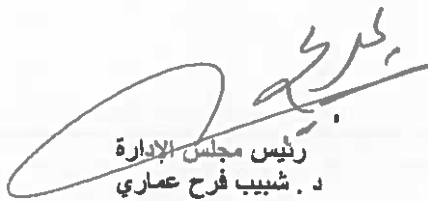 رئيس مجلس الإدارة
د . شبيب فرح عماري